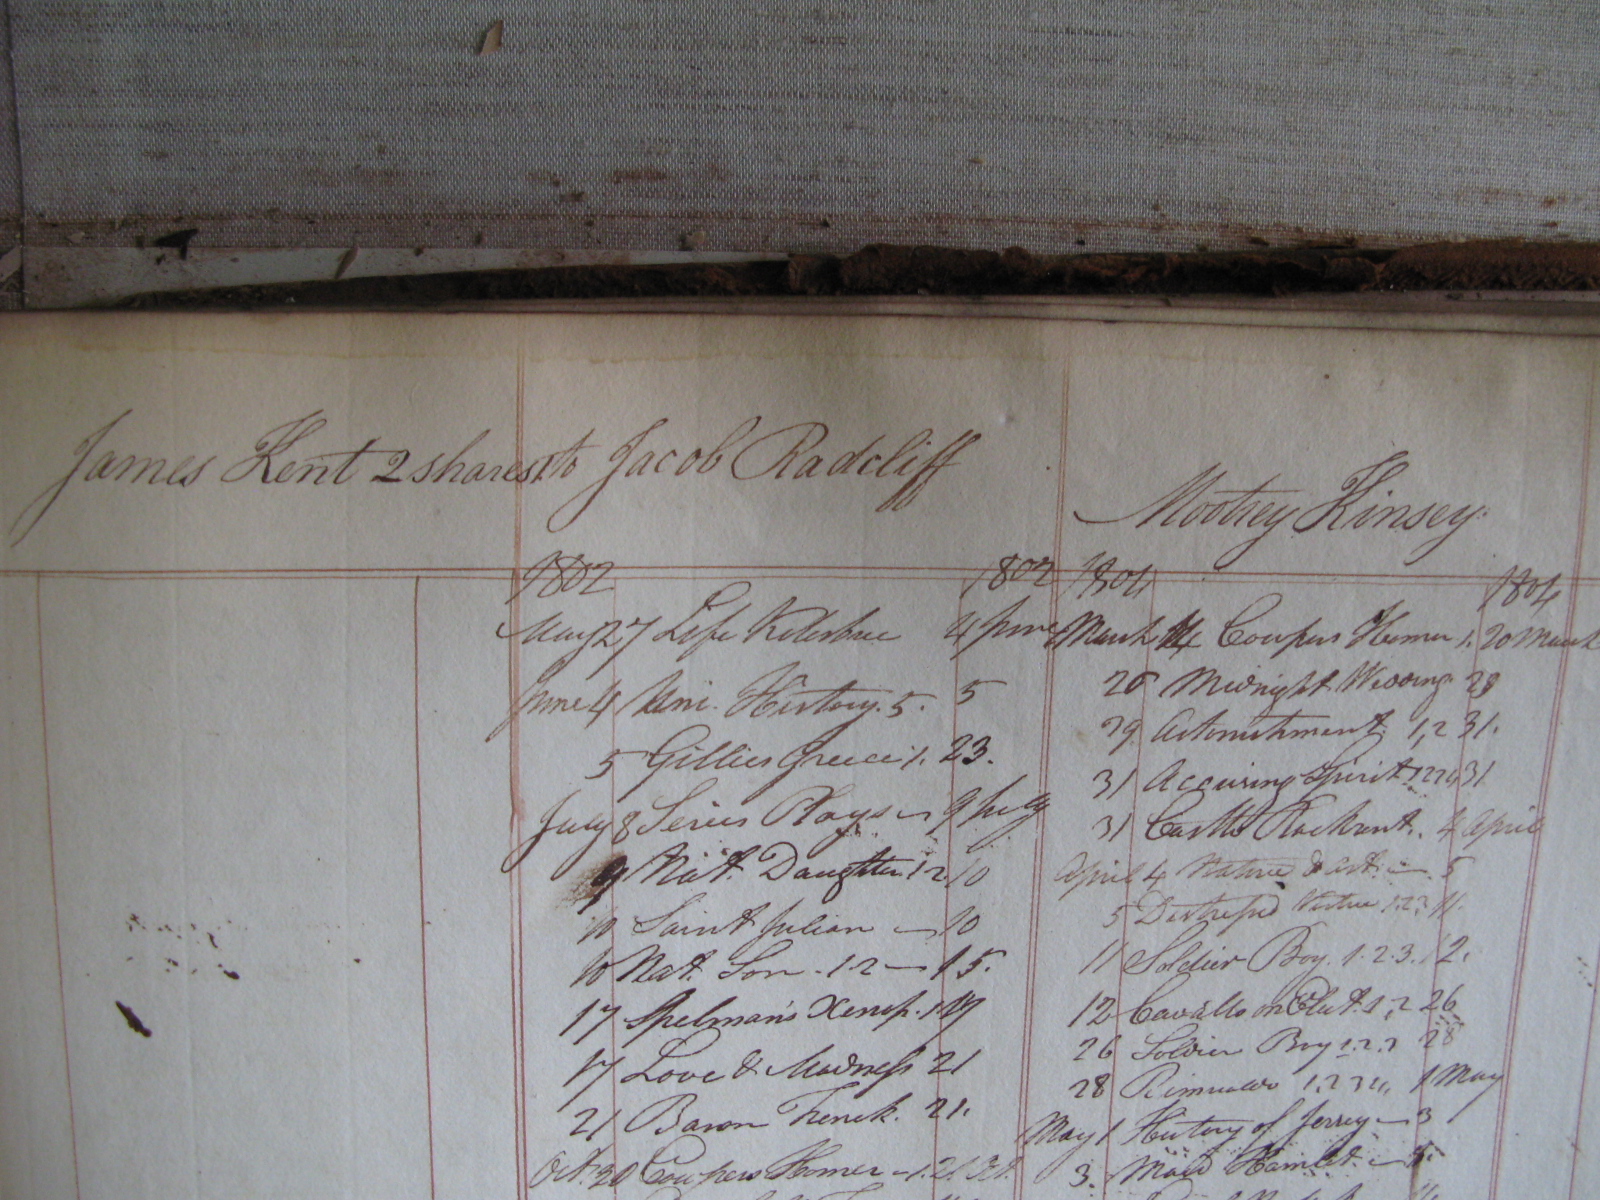 James Kent 2 shares to Jacob Radcliff
Mottrey Kinsey
1802 1802
May 27 Life Kotesbue 4 June
June 4 Uni. History. 5. 5
5 Gillies Greece 1. 23.
July 8 Series Plays — 9 July
9 Nat. Daughter 1 2 10
10 Saint Julian — 10
10 Nat. Son - 1 2 — 15.
17 Spelman's Xenop. 1 17
17 Love & Madness 21
21 Baron Trenck. 21.
Oct. 20 Cowpers Homer — 1. 21 Oct.
1804 1804
March 14 Cowpers Homer 1. 20 March
20 Midnight Wedding 29
29 Astonishment 1,2 31.
31 Accusing Spirit 31
31 Castle Rackrent. 4 April
April 4 Nature & Art. — 5
5 Distressed Virtue 1.2.3 11.
11 Soldier Boy. 1.2.3. 12.
12 Cavallo on Elect. 1,2 26
26 Soldier Boy 1.2.3 28
28 1 2 3 4, 1 May
May 1 History of Jersey — 3
3. Maid Hamlet. —